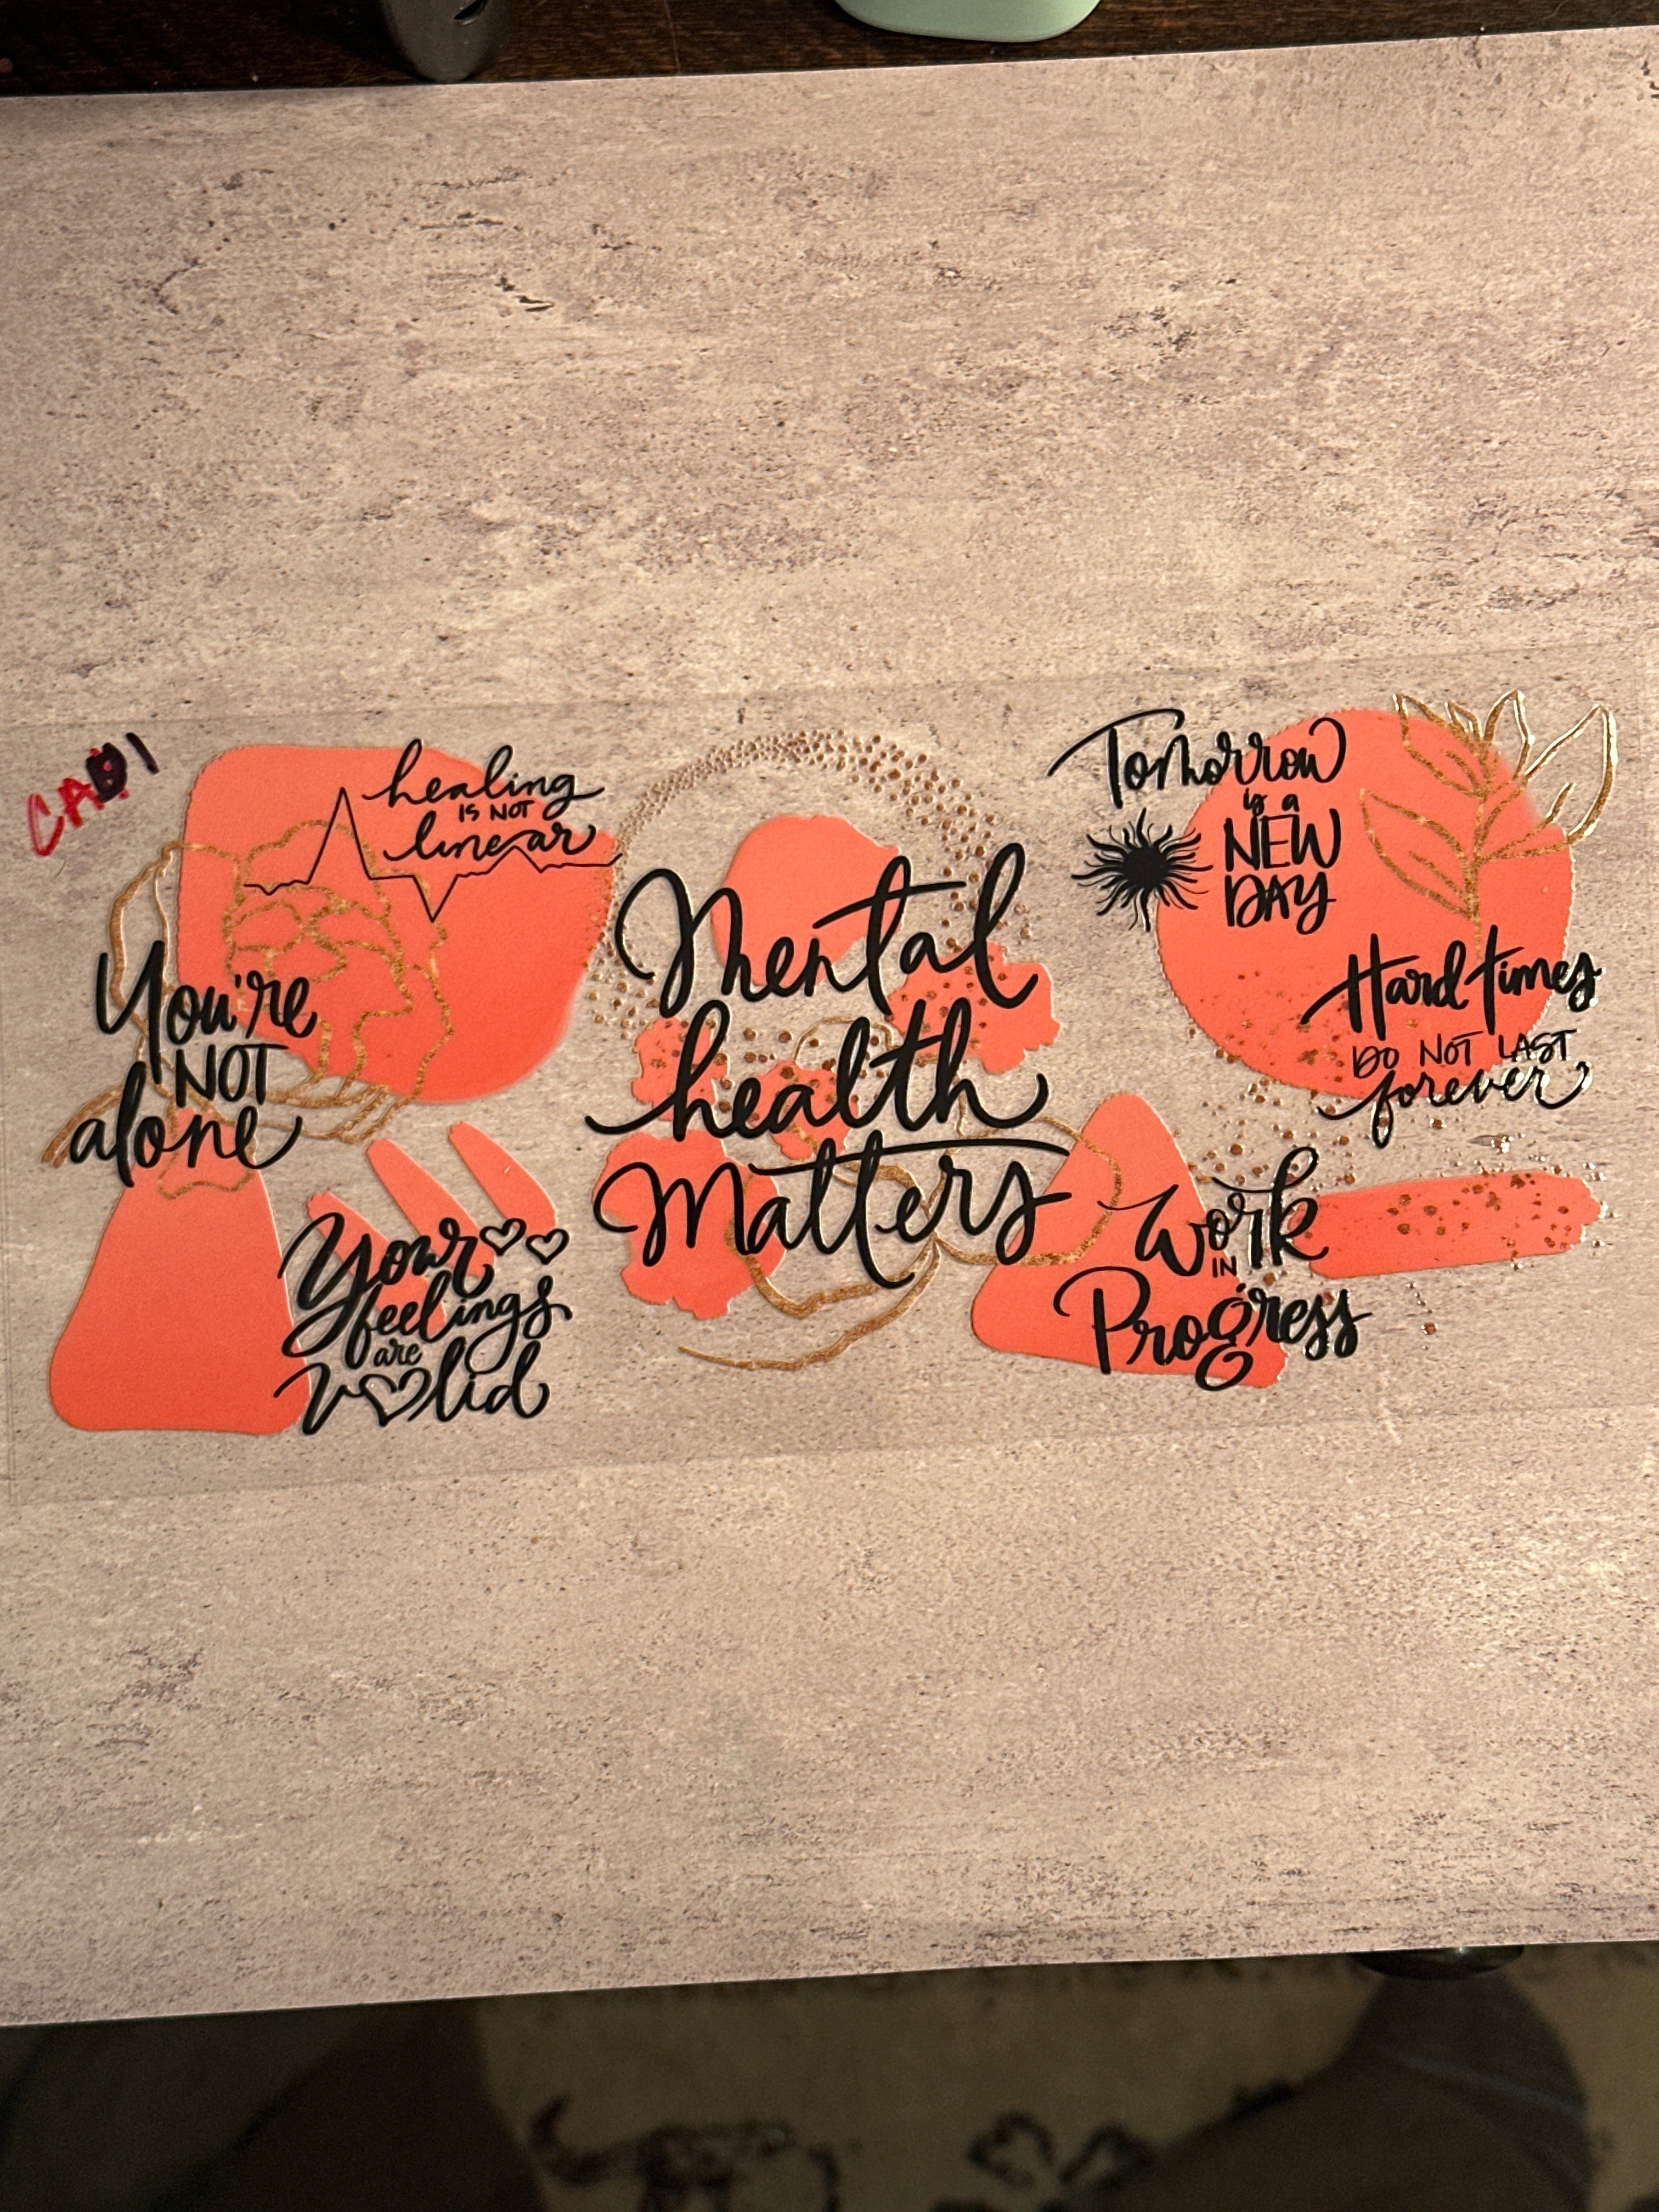 healing
IS NOT
linear
You're
NOT
alone
Your
feelings
are
Valid
Mental
health
Matters
Tomorrow
is a
NEW
DAY
Hard times
DO NOT LAST
forever
Work
IN
Progress